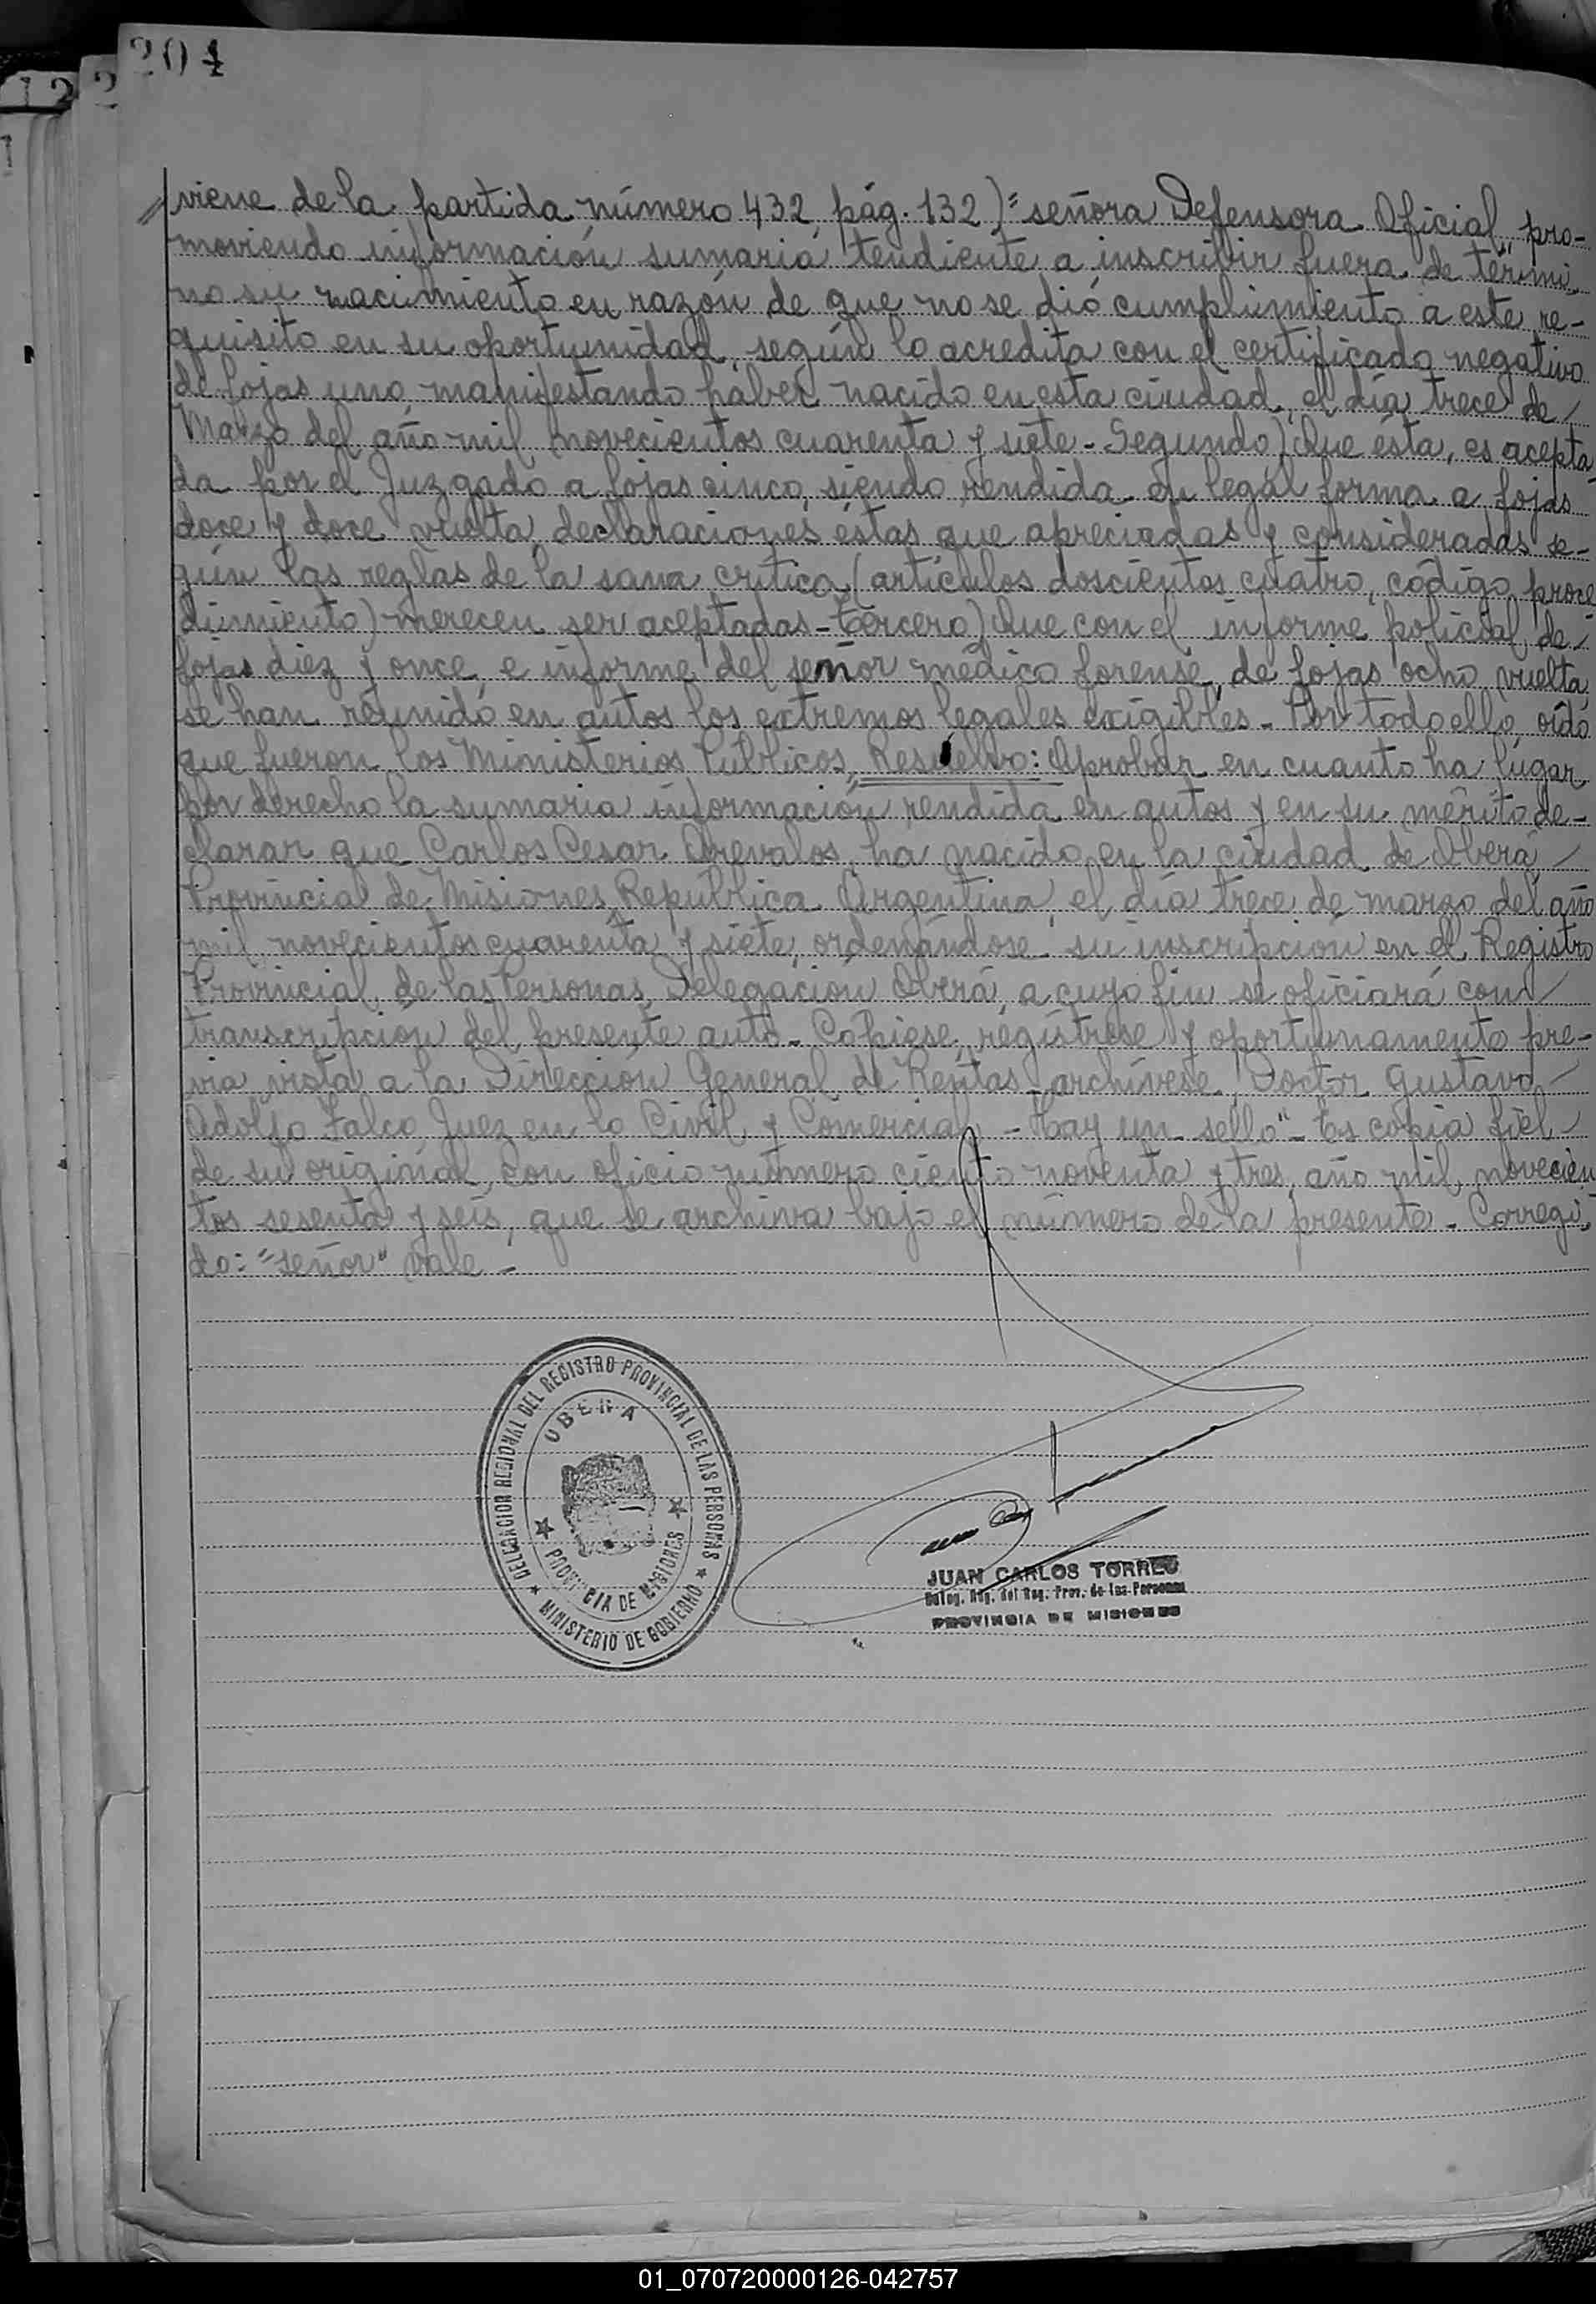 204
122
viene de la partida número 432, pág. 132)= señora Defensora Oficial, pro-
moviendo información sumaria tendiente a inscribir fuera de térmi-
no su nacimiento en razón de que no se dió cumplimiento a este re-
quisito en su oportunidad, según lo acredita con el certificado negativo
de fojas uno manifestando haber nacido en esta ciudad, el día trece de
Marzo del año mil novecientos cuarenta y siete - Segundo) Que ésta, es acepta-
da por el Juzgado a fojas cinco, siendo rendida en legal forma a fojas
doce y doce vuelta, declaraciones éstas que apreciadas y consideradas se-
gún las reglas de la sana crítica (artículos doscientos cuatro, código proce
dimiento) merecen ser aceptadas - Tercero) Que con el informe policial de
fojas diez y once, e informe del señor médico forense, de fojas ocho vuelta,
se han reunido en autos los extremos legales exigibles - Por todo ello, oído
que fueron los Ministerios Públicos, Resuelvo: Aprobar en cuanto ha lugar
por derecho la sumaria información rendida en autos y en su mérito de-
clarar que Carlos Cesar Arevalos, ha nacido en la ciudad de Oberá
Provincial de Misiones República Argentina, el día trece de marzo del año
mil novecientos cuarenta y siete, ordenándose su inscripción en el Registro
Provincial de las Personas, Delegación Oberá, a cuyo fin se oficiará con
transcripción del presente auto - Cópiese, regístrese y oportunamente pre-
via vista a la Dirección General de Rentas - archívese, Doctor Gustavo
Adolfo Falco Juez en lo Civil y Comercial - Hay un sello" - Es copia fiel
de su original, con oficio número ciento noventa y tres, año mil novecien
tos sesenta y seis, que se archiva bajo el número de la presente - Corregi-
do: "señor" Vale -
DELEGACION REGIONAL DEL REGISTRO PROVINCIAL DE LAS PERSONAS
OBERA
PROVINCIA DE MISIONES
MINISTERIO DE GOBIERNO
JUAN CARLOS TORRES
Deleg. Reg. del Reg. Prov. de las Personas
PROVINCIA DE MISIONES
01_070720000126-042757